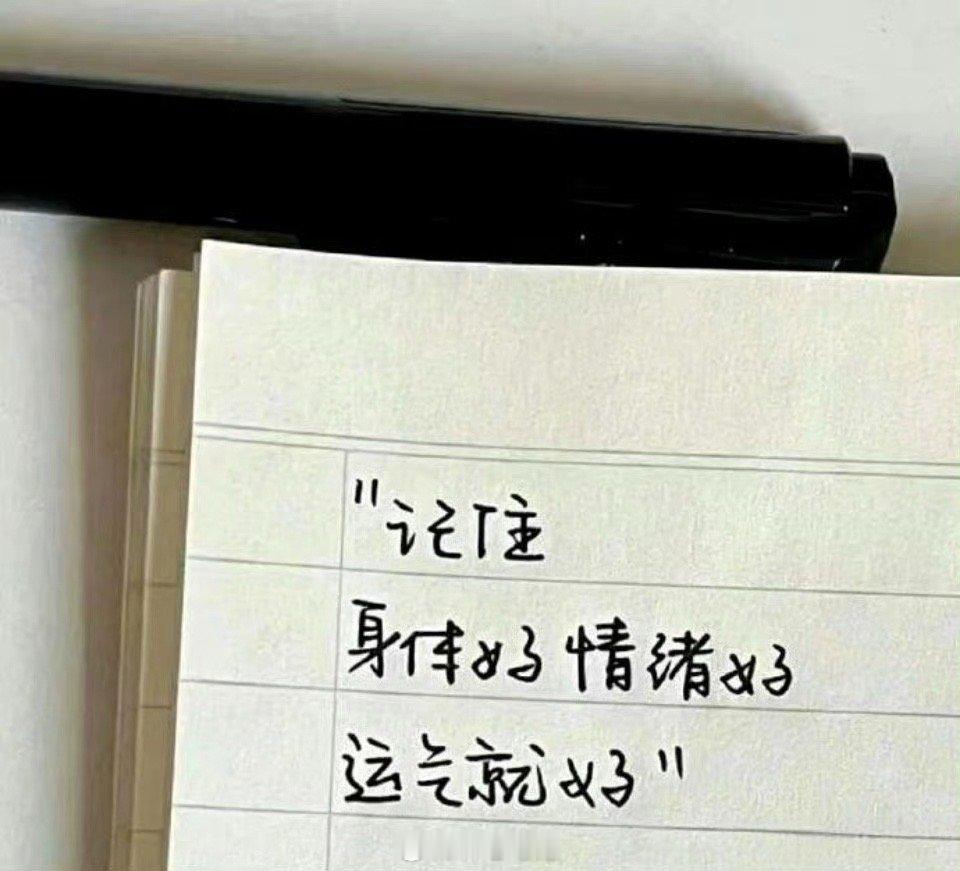 "记住
身体好 情绪好
运气就好"